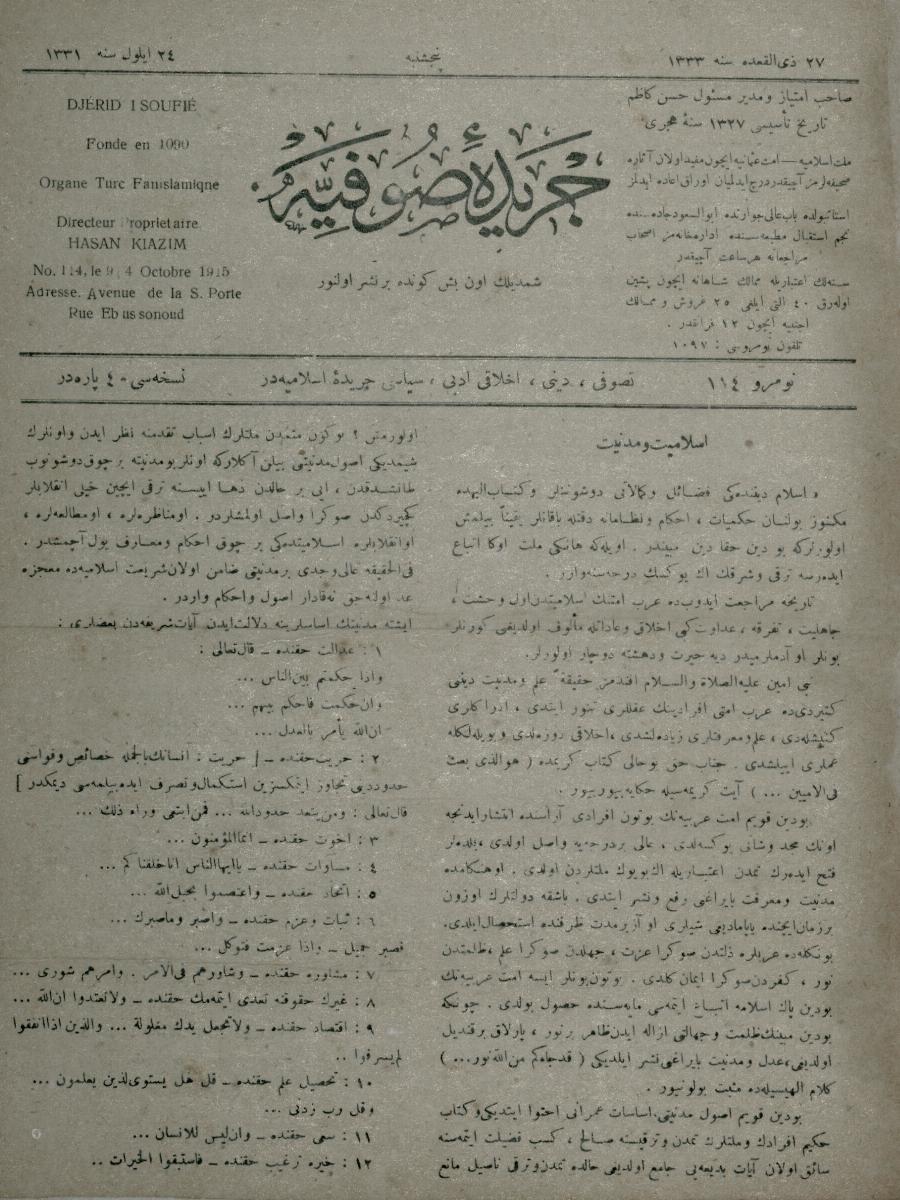 ٢٧ ذی القعده سنه ١٣٣٣
پنجشنبه
٢٤ ایلول سنه ١٣٣١
صاحب امتیاز و مدیر مسئول حسن کاظم
تاریخ تأسیسی ١٣٢٧ سنهٔ هجری
ملت اسلامیه — امت عثمانیه ایچون مفید اولان آثاره
صحیفه‌لرمز آچیقدر درج ایدلمیان اوراق اعاده ایدلمز
استانبولده باب عالی جوارنده ابوالسعود جاده‌سنده
نجم استقبال مطبعه‌سنده اداره‌خانه‌مز اصحاب
مراجعاته هر ساعت آچیقدر
سنه‌لك اعتباریله ممالك شاهانه ایچون پشین
اوله‌رق ٤٠ التی آیلغی ٢٥ غروش و ممالك
اجنبیه ایچون ١٢ فرانقدر .
تلفون نومروسی : ١٠٩٧
جریدهٔ صوفیه
شمدیلك اون بش کونده بر نشر اولنور
DJÉRID I SOUFIÉ
Fonde en 1090
Organe Turc Panislamique
Directeur Proprietaire
HASAN KIAZIM
No. 114, le 9, 4 Octobre 1915
Adresse. Avenue de la S. Porte
Rue Eb us sonoud
نومرو ١١٤
تصوفی ، دینی ، اخلاقی ادبی ، سیاسی جریدهٔ اسلامیه‌در
نسخه‌سی ٤٠ پاره‌در
اسلامیت و مدنیت
« اسلام دیننده‌کی فضائل و کمالاتی دوشوننلر وکتاب الهیده
مکنوز بولنان حکمیات ، احکام ونظاماته دقتله باقانلر یقیناً بیلمش
اولورلرکه بو دین حقا دین مبیندر . اویله‌که هانکی ملت اوکا اتباع
ایده‌رسه ترقی و شرقك اك یوکسك درجه‌سنه وارر .
تاریخه مراجعت ایدوب‌ده عرب امتنك اسلامیتدن اول وحشت ،
جاهلیت ، تفرقه ، عداوت کبی اخلاق وعاداتله مألوف اولدیغنی کورنلر
بونلر او آدملرمیدر دیه حیرت ودهشته دوچار اولورلر.
نبی امین علیه الصلاة والسلام افندمز حقیقة علم ومدنیت دینی
کتیردی‌ده عرب امتی افرادینك عقللری تنور ایتدی ، ادراکلری
کنیشله‌دی ، علم ومعرفتلری زیاده‌لشدی ، اخلاقی دوزه‌لدی وبویله‌لکله
عمللری اییلشدی . جناب حق بوحالی کتاب کریمده ( هوالذی بعث
فی الامیین ... ) آیت کریمه‌سیله حکایه بیوریور .
بودین قویم امت عربیه‌نك بوتون افرادی آراسنده انتشار ایدنجه
اونك مجد وشانی یوکسه‌لدی ، عالی بردرجه‌یه واصل اولدی ، بلده‌لر
فتح ایده‌رك تمدن اعتباریله اك بویوك ملتلردن اولدی . اوهنکامده
مدنیت ومعرفت بایراغنی رفع ونشر ایتدی . باشقه دولتلرك اوزون
برزمان ایچنده یاپامادیغی شیلری او آز بر مدت ظرفنده استحصال ایلدی.
بونکله‌ده عربلره ذلتدن صوکرا عزت ، جهلدن صوکرا علم ، ظلمتدن
نور ، کفردن صوکرا ایمان کلدی . بوتون بونلر ایسه امت عربیه‌نك
بودین پاك اسلامه اتباع ایتمه‌سی سایه‌سنده حصول بولدی . چونکه
بودین مبینك ظلمت وجهالتی ازاله ایدن ظاهر برنور ، پارلاق برقندیل
اولدیغی ، عدل ومدنیت بایراغنی نشر ایلدیکی ( قدجاءکم من الله نور... )
کلام الهیسیله‌ده مثبت بولونیور .
بودین قویم اصول مدنیتی ، اساسات عمرانی احتوا ایتدیکی وکتاب
حکیم افرادك وملتلرك تمدن وترقیسنه صالح ، کسب فضیلت ایتمه‌سنه
سائق اولان آیات بدیعه‌یی جامع اولدیغی حالده تمدن وترقی ناصیل مانع
اولورمش ؟ بوکون متمدن ملتلرك اسباب تقدمنه نظر ایدن واونلرك
شیمدیکی اصول مدنیتنی بیلن آکلارکه اونلر بومدنیته بر چوق دوشونوب
طانشدقدن ، ایی بر حالدن دها اییسنه ترقی ایچین خیلی انقلابلر
کچیردکدن صوکرا واصل اولمشلردر . اومناظره‌لره ، اومطالعه‌لره ،
اوانقلابلره اسلامیتده‌کی بر چوق احکام ومعارف یول آچمشدر .
فی الحقیقه عالی وجدی بر مدنیتی ضامن اولان شریعت اسلامیه‌ده معجزه
عد اولنه‌جق نه‌قادار اصول واحکام واردر .
ایشته مدنیتك اساسلرینه دلالت ایدن آیات شریفه‌دن بعضلری :
١ : عدالت حقنده – قال تعالی :
واذا حکمتم بین الناس ...
وان حکمت فاحکم بینهم ...
ان الله یأمر بالعدل ...
٢ : حریت حقنده – [ حریت : انسانك بالجمله خصائص وقواسنی
حدودینی تجاوز ایتمکسزین استکمال وتصرف ایده بیلمه‌سی دیمکدر ]
قال تعالی : ومن یتعد حدود الله ... فمن ابتغی وراء ذلك ...
٣ : اخوت حقنده – انما المؤمنون ...
٤ : مساوات حقنده – یاایها الناس انا خلقناکم ...
٥ : اتحاد حقنده – واعتصموا بحبل الله ...
٦ : ثبات وعزم حقنده – واصبر وماصبرك ...
فصبر جمیل – واذا عزمت فتوکل ...
٧ : مشاوره حقنده – وشاورهم فی الامر . وامرهم شوری ...
٨ : غیرك حقوقنه تعدی ایتمه‌مك حقنده – ولاتعتدوا ان الله ...
٩ : اقتصاد حقنده – ولاتجعل یدك مغلولة ... والذین اذا انفقوا
لم یسرفوا ..
١٠ : تحصیل علم حقنده – قل هل یستوی الذین یعلمون ...
وقل رب زدنی ...
١١ : سعی حقنده – وان لیس للانسان ...
١٢ : خیره ترغیب حقنده – فاستبقوا الخیرات ..